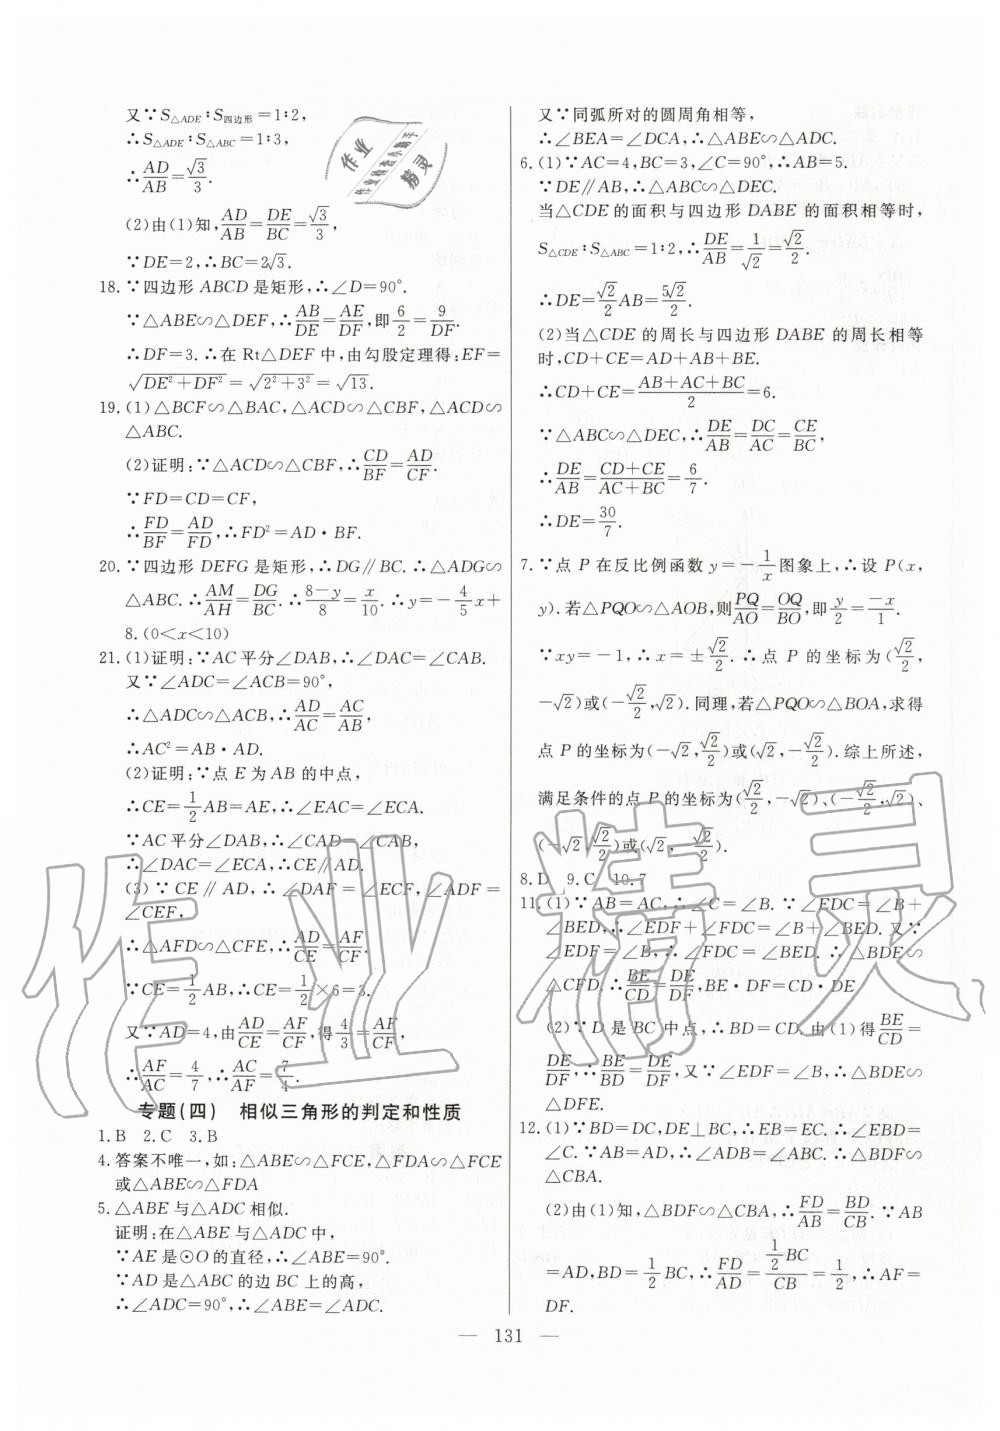 又∵S△ADE∶S四边形=1∶2,
∴S△ADE∶S△ABC=1∶3,
∴AD/AB=√3/3.
(2)由(1)知,AD/AB=DE/BC=√3/3,
∵DE=2,∴BC=2√3.
18.∵四边形ABCD是矩形,∴∠D=90°.
∵△ABE∽△DEF,∴AB/DE=AE/DF,即6/2=9/DF.
∴DF=3.∴在Rt△DEF中,由勾股定理得:EF=
√(DE²+DF²)=√(2²+3²)=√13.
19.(1)△BCF∽△BAC,△ACD∽△CBF,△ACD∽
△ABC.
(2)证明:∵△ACD∽△CBF,∴CD/BF=AD/CF.
∵FD=CD=CF,
∴FD/BF=AD/FD,∴FD²=AD·BF.
20.∵四边形DEFG是矩形,∴DG∥BC.∴△ADG∽
△ABC.∴AM/AH=DG/BC.∴(8-y)/8=x/10.∴y=-4/5x+
8.(0<x<10)
21.(1)证明:∵AC平分∠DAB,∴∠DAC=∠CAB.
又∵∠ADC=∠ACB=90°,
∴△ADC∽△ACB,∴AD/AC=AC/AB,
∴AC²=AB·AD.
(2)证明:∵点E为AB的中点,
∴CE=1/2AB=AE,∴∠EAC=∠ECA.
∵AC平分∠DAB,∴∠CAD=∠CAB,
∴∠DAC=∠ECA,∴CE∥AD.
(3)∵CE∥AD,∴∠DAF=∠ECF,∠ADF=
∠CEF,
∴△AFD∽△CFE,∴AD/CE=AF/CF.
∵CE=1/2AB,∴CE=1/2×6=3.
又∵AD=4,由AD/CE=AF/CF,得4/3=AF/CF,
∴AF/AC=4/7,∴AC/AF=7/4.
专题(四) 相似三角形的判定和性质
1.B 2.C 3.B
4.答案不唯一,如:△ABE∽△FCE,△FDA∽△FCE
或△ABE∽△FDA
5.△ABE与△ADC相似.
证明:在△ABE与△ADC中,
∵AE是⊙O的直径,∴∠ABE=90°.
∵AD是△ABC的边BC上的高,
∴∠ADC=90°,∴∠ABE=∠ADC.
又∵同弧所对的圆周角相等,
∴∠BEA=∠DCA,∴△ABE∽△ADC.
6.(1)∵AC=4,BC=3,∠C=90°,∴AB=5.
∵DE∥AB,∴△ABC∽△DEC.
当△CDE的面积与四边形DABE的面积相等时,
S△CDE∶S△ABC=1∶2,∴DE/AB=1/√2=√2/2.
∴DE=√2/2AB=5√2/2.
(2)当△CDE的周长与四边形DABE的周长相等
时,CD+CE=AD+AB+BE.
∴CD+CE=(AB+AC+BC)/2=6.
∵△ABC∽△DEC,∴DE/AB=DC/AC=CE/BC,
∴DE/AB=(CD+CE)/(AC+BC)=6/7.
∴DE=30/7.
7.∵点P在反比例函数y=-1/x图象上,∴设P(x,
y).若△PQO∽△AOB,则PQ/AO=OQ/BO,即y/2=-x/1.
∵xy=-1,∴x=±√2/2.∴点P的坐标为(√2/2,
-√2)或(-√2/2,√2).同理,若△PQO∽△BOA,求得
点P的坐标为(-√2,√2/2)或(√2,-√2/2).综上所述,
满足条件的点P的坐标为(√2/2,-√2)、(-√2/2,√2)、
(-√2,√2/2)或(√2,-√2/2).
8.D 9.C 10.7
11.(1)∵AB=AC,∴∠C=∠B.∵∠EDC=∠B+
∠BED,∴∠EDF+∠FDC=∠B+∠BED.又∵
∠EDF=∠B,∴∠FDC=∠BED.∴△BDE∽
△CFD.∴BE/CD=DE/DF,BE·DF=CD·DE
(2)∵D是BC中点,∴BD=CD.由(1)得BE/CD=
DE/DF,∴BE/BD=DE/DF,又∵∠EDF=∠B,∴△BDE∽
△DFE.
12.(1)∵BD=DC,DE⊥BC,∴EB=EC,∴∠EBD=
∠C.∵AB=AD,∴∠ADB=∠ABC.∴△BDF∽
△CBA.
(2)由(1)知,△BDF∽△CBA,∴FD/AB=BD/CB.∵AB
=AD,BD=1/2BC,∴FD/AD=(1/2BC)/CB=1/2,∴AF=
DF.
— 131 —
作业
作业检查小帮手
精灵
作业精灵